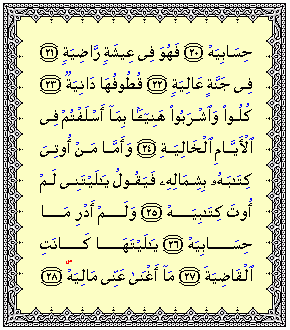 حِسَابِيَهْ ﴿٢٠﴾ فَهُوَ فِى عِيشَةٍ رَّاضِيَةٍ ﴿٢١﴾
فِى جَنَّةٍ عَالِيَةٍ ﴿٢٢﴾ قُطُوفُهَا دَانِيَةٌ ﴿٢٣﴾
كُلُوا۟ وَٱشْرَبُوا۟ هَنِيٓـًٔۢا بِمَآ أَسْلَفْتُمْ فِى
ٱلْأَيَّامِ ٱلْخَالِيَةِ ﴿٢٤﴾ وَأَمَّا مَنْ أُوتِىَ
كِتَـٰبَهُۥ بِشِمَالِهِۦ فَيَقُولُ يَـٰلَيْتَنِى لَمْ
أُوتَ كِتَـٰبِيَهْ ﴿٢٥﴾ وَلَمْ أَدْرِ مَا
حِسَابِيَهْ ﴿٢٦﴾ يَـٰلَيْتَهَا كَانَتِ
ٱلْقَاضِيَةَ ﴿٢٧﴾ مَآ أَغْنَىٰ عَنِّى مَالِيَهْ ۜ ﴿٢٨﴾